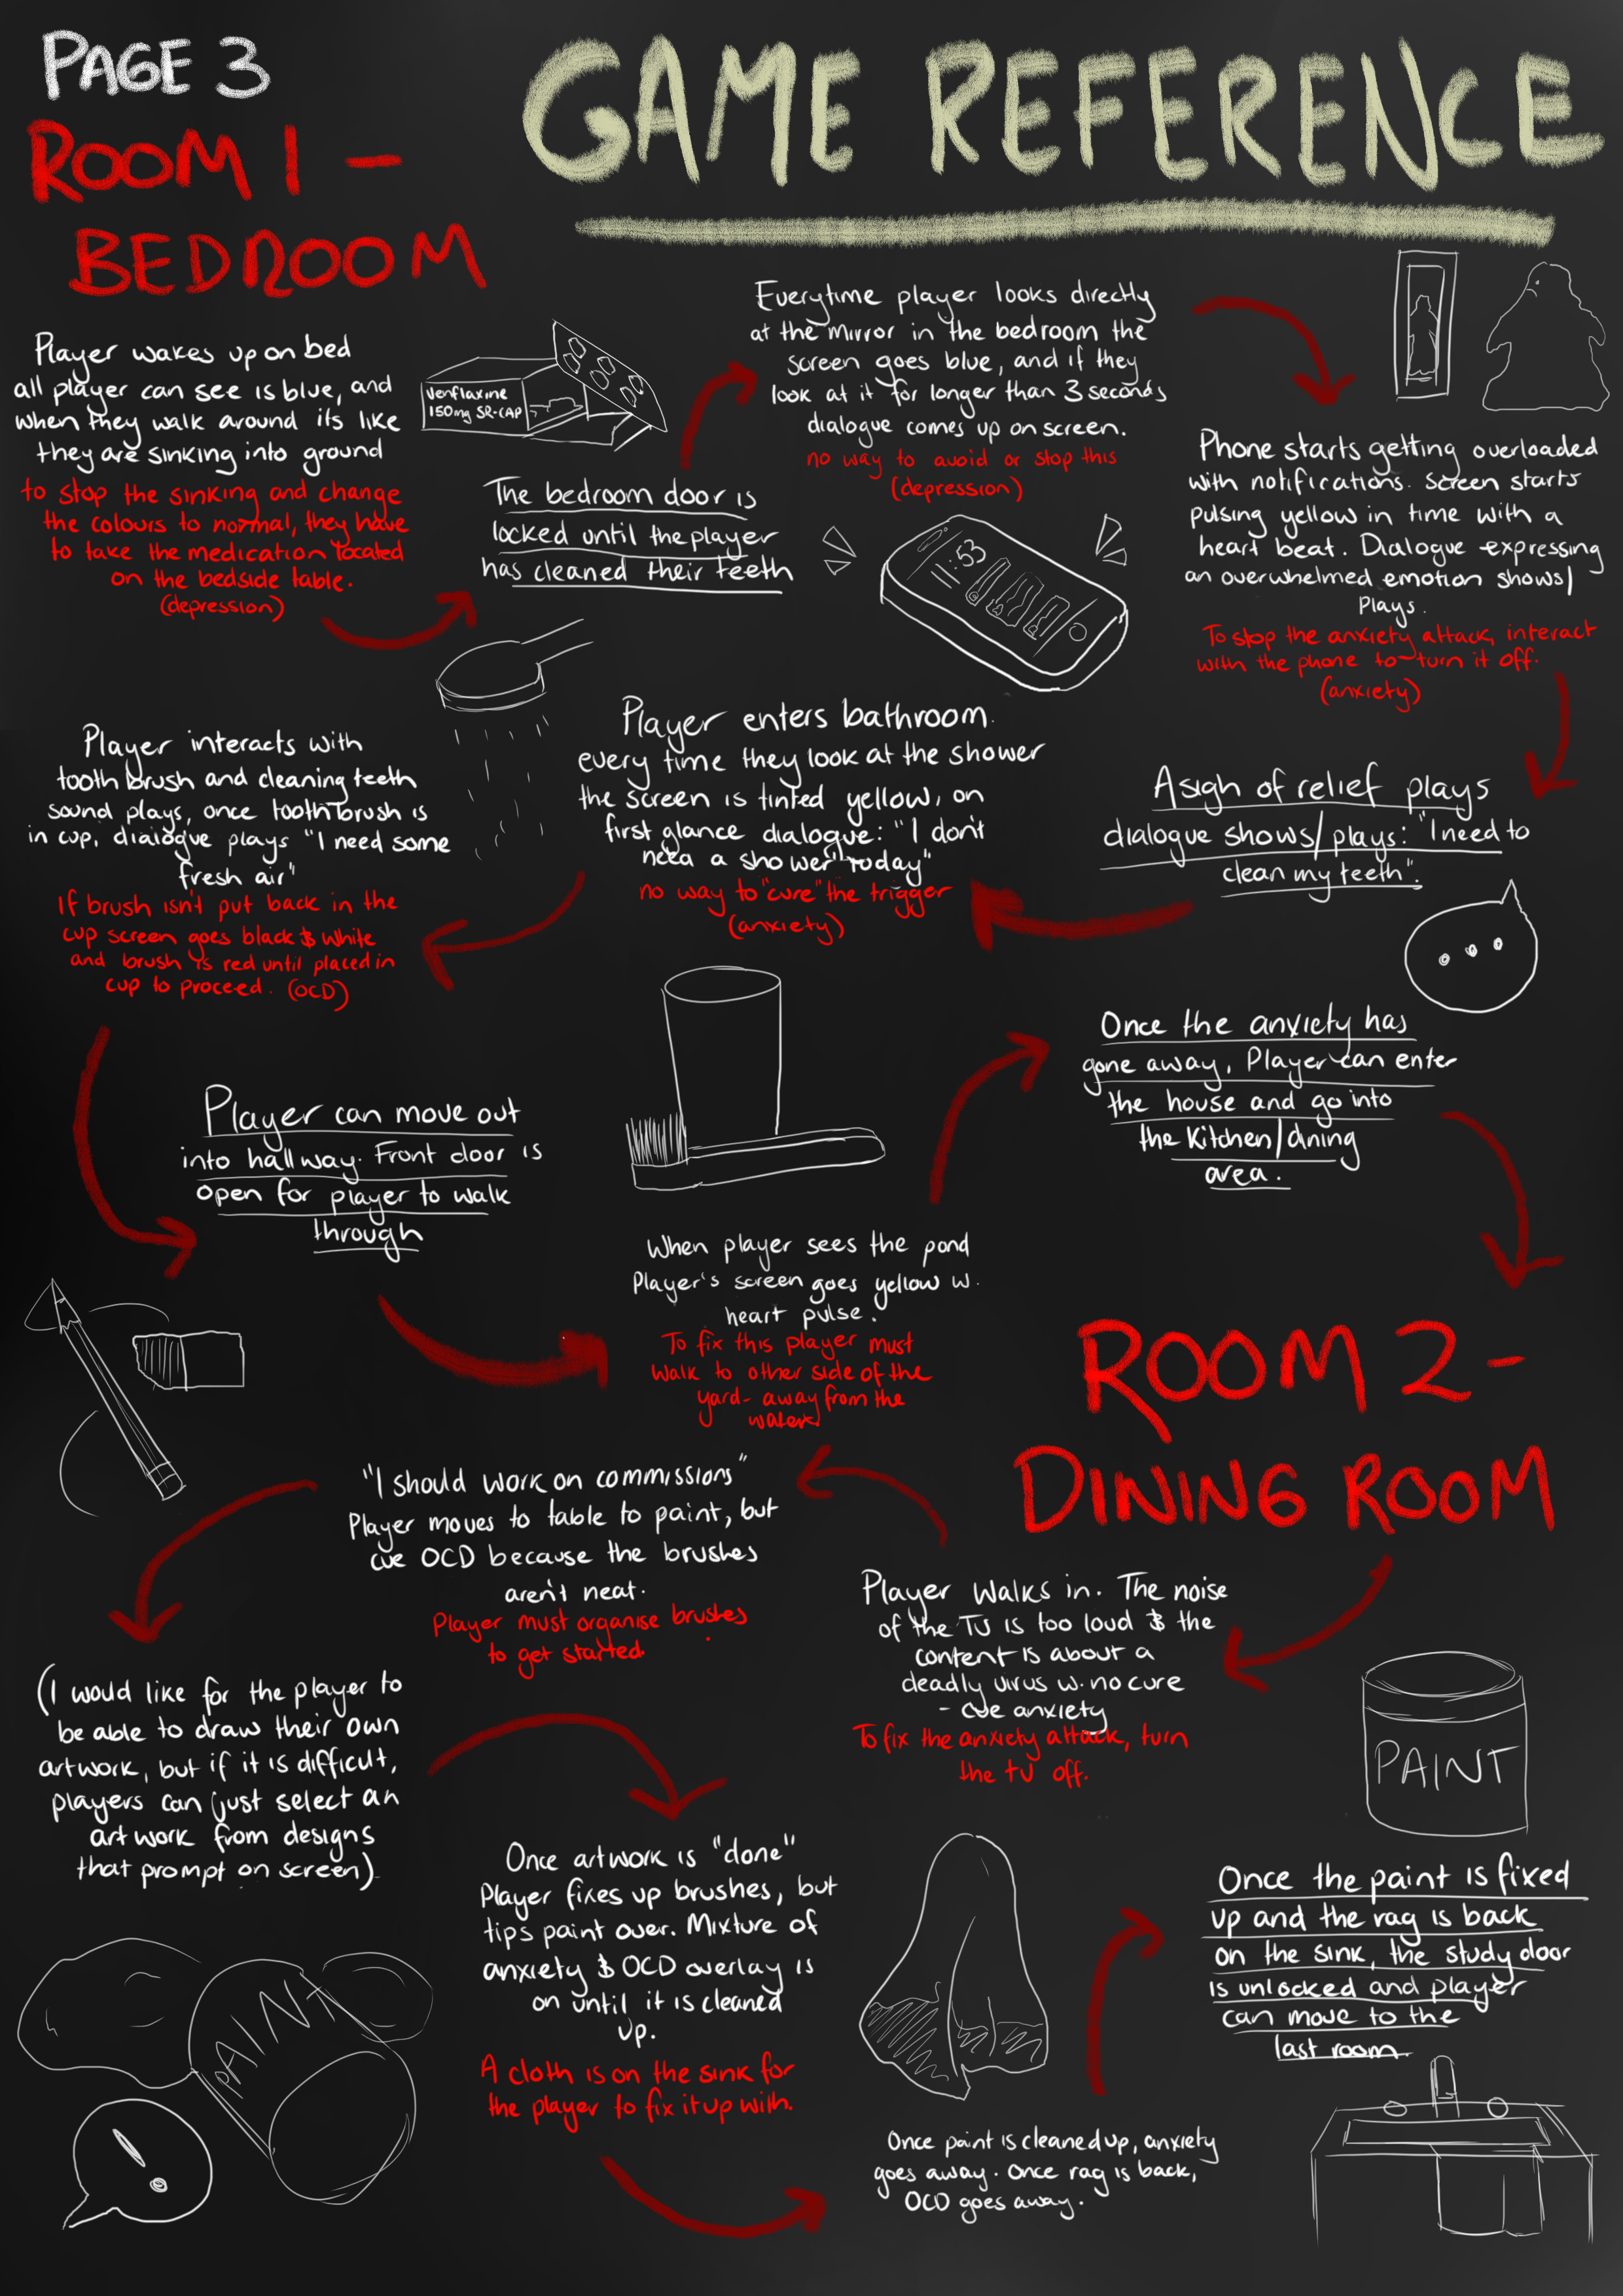 PAGE 3
GAME REFERENCE
ROOM 1 -
BEDROOM
Player wakes up on bed
all player can see is blue, and
when they walk around its like
they are sinking into ground
to stop the sinking and change
the colours to normal, they have
to take the medication located
on the bedside table.
(depression)
Venflaxine
150mg SR-CAP
The bedroom door is
locked until the player
has cleaned their teeth
Everytime player looks directly
at the mirror in the bedroom the
screen goes blue, and if they
look at it for longer than 3 seconds
dialogue comes up on screen.
no way to avoid or stop this
(depression)
11:53
Phone starts getting overloaded
with notifications. Screen starts
pulsing yellow in time with a
heart beat. Dialogue expressing
an overwhelmed emotion shows/
plays.
To stop the anxiety attack, interact
with the phone to turn it off.
(anxiety)
A sigh of relief plays
dialogue shows/plays: "I need to
clean my teeth".
Player enters bathroom.
every time they look at the shower
the screen is tinted yellow, on
first glance dialogue: "I don't
need a shower today"
no way to "cure" the trigger
(anxiety)
Player interacts with
tooth brush and cleaning teeth
sound plays, once toothbrush is
in cup, dialogue plays "I need some
fresh air"
If brush isn't put back in the
cup screen goes black & white
and brush is red until placed in
cup to proceed. (OCD)
Player can move out
into hallway. Front door is
open for player to walk
through
When player sees the pond
Player's screen goes yellow w.
heart pulse.
To fix this player must
walk to other side of the
yard- away from the
water
Once the anxiety has
gone away, Player can enter
the house and go into
the kitchen/dining
area.
ROOM 2 -
DINING ROOM
Player walks in. The noise
of the TV is too loud & the
content is about a
deadly virus w. no cure
- cue anxiety
To fix the anxiety attack, turn
the tv off.
"I should work on commissions"
Player moves to table to paint, but
cue OCD because the brushes
aren't neat.
Player must organise brushes
to get started.
(I would like for the player to
be able to draw their own
artwork, but if it is difficult,
players can just select an
art work from designs
that prompt on screen)
Once artwork is "done"
Player fixes up brushes, but
tips paint over. Mixture of
anxiety & OCD overlay is
on until it is cleaned
up.
A cloth is on the sink for
the player to fix it up with.
Once paint is cleaned up, anxiety
goes away. Once rag is back,
OCD goes away.
PAINT
Once the paint is fixed
up and the rag is back
on the sink, the study door
is unlocked and player
can move to the
last room.
PAINT